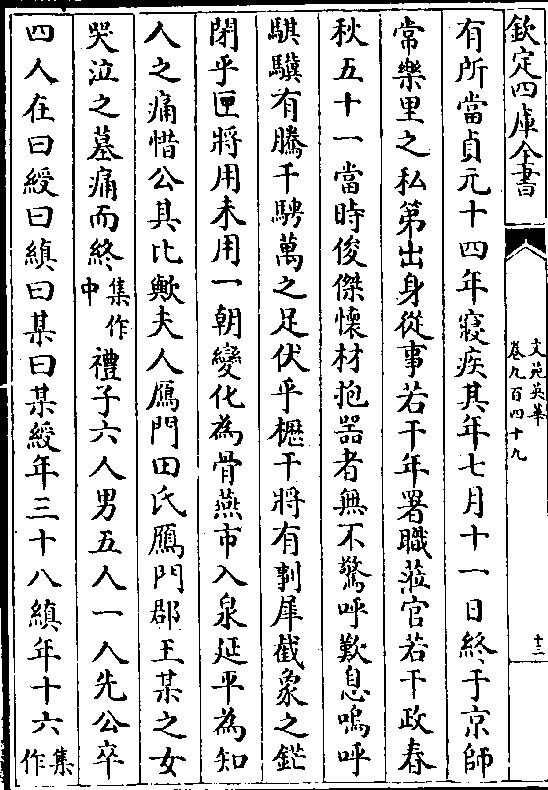 欽定四庫全書
文苑英華
卷九百四十九
十三
有所當貞元十四年寢疾其年七月十一日終于京師
常樂里之私第出身從事若干年署職蒞官若干政春
秋五十一當時俊傑懷材抱器者無不驚呼歎息嗚呼
騏驥有騰千騁萬之足伏乎櫪干將有剸犀截象之鋩
閉乎匣將用未用一朝變化為骨燕市入泉延平為知
人之痛惜公其比歟夫人鴈門田氏鴈門郡王某之女
哭泣之墓痛而終集作中禮子六人男五人一人先公卒
四人在曰綬曰縝曰某曰某綬年三十八縝年十六集作